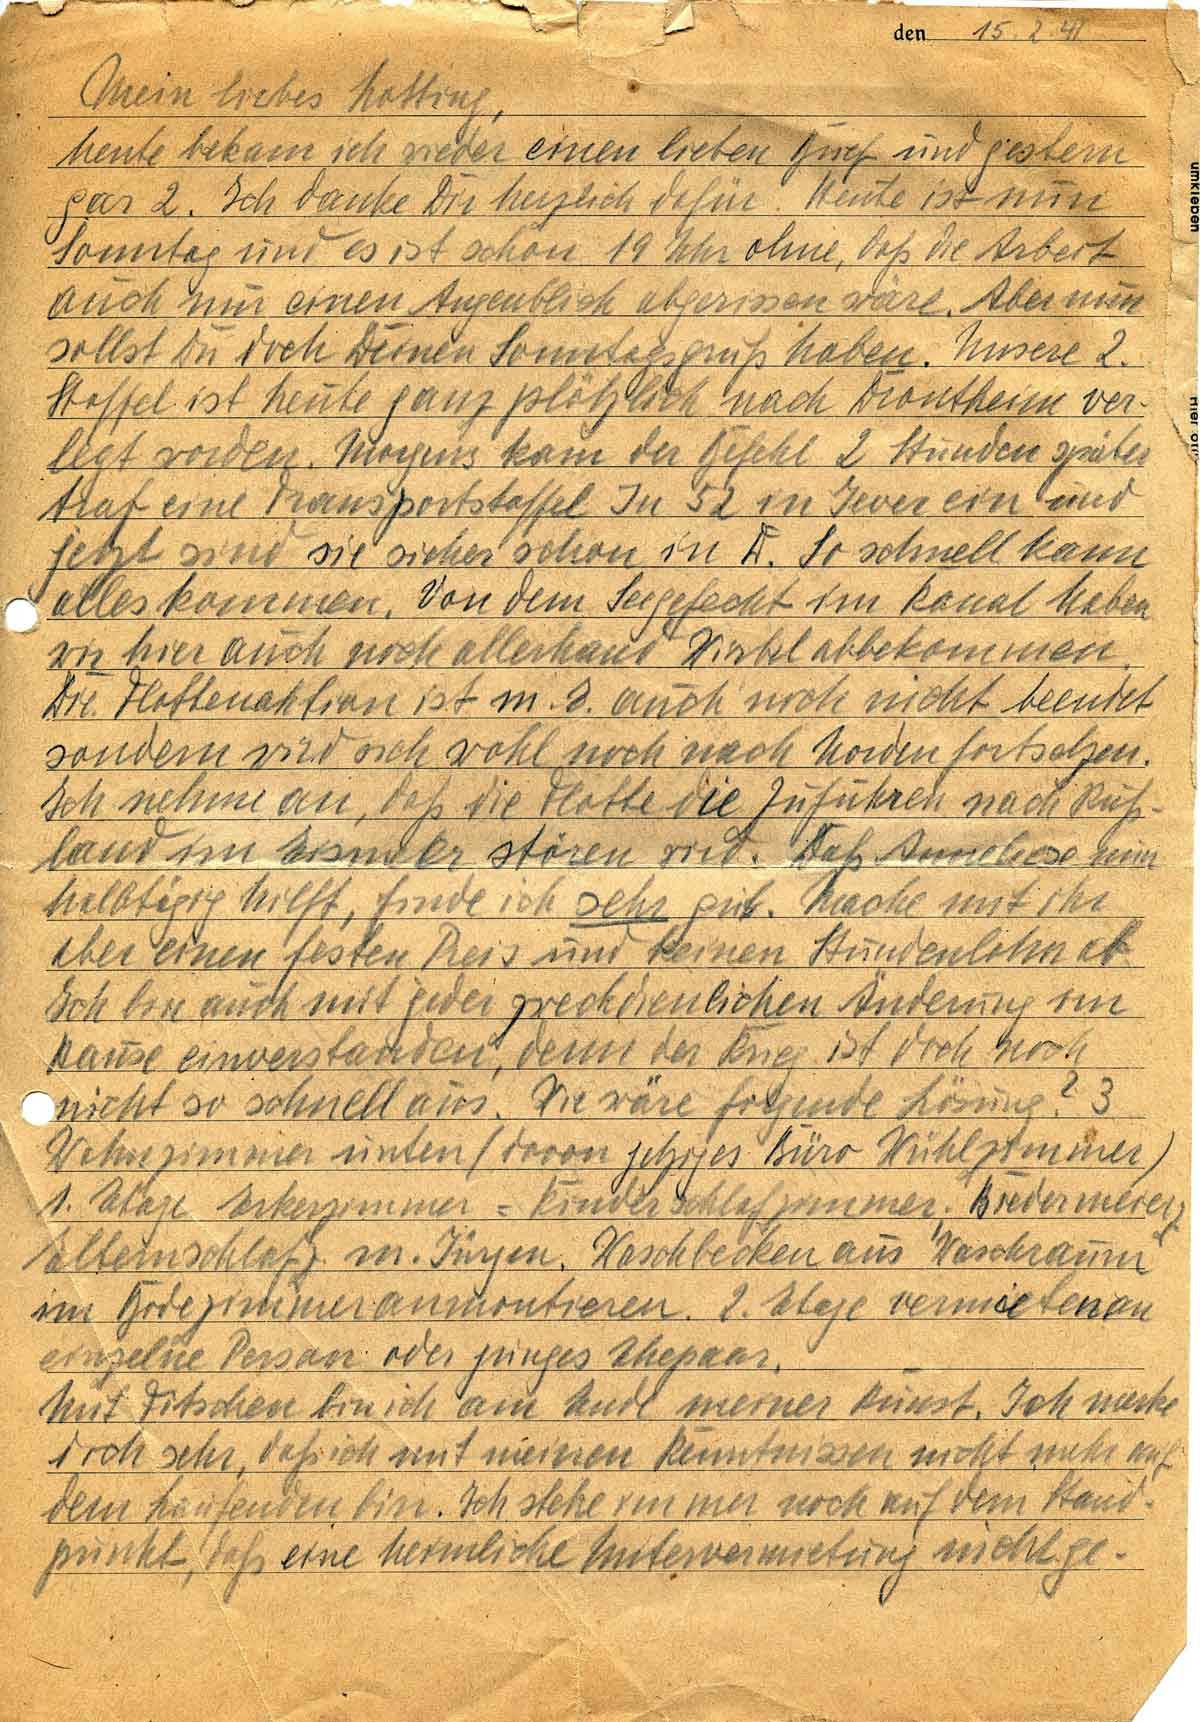 den 15. 2. 41
Mein liebes Matting,
heute bekam ich wieder einen lieben Brief und gestern
gar 2. Ich danke Dir herzlich dafür. Heute ist nun
Sonntag und es ist schon 19 Uhr ohne, daß die Arbeit
auch nur einen Augenblick abgerissen wäre. Aber nun
sollst Du doch Deinen Sonntagsgruß haben. Unsere 2.
Staffel ist heute ganz plötzlich nach Drontheim ver-
legt worden. Morgens kam der Befehl 2 Stunden später
traf eine Transportstaffel Ju 52 in Jever ein und
jetzt sind sie sicher schon in D. So schnell kann
alles kommen. Von dem Seegefecht im Kanal haben
wir hier auch noch allerhand Wirbel abbekommen.
Die Flottenaktion ist m. E. auch noch nicht beendet
sondern wird sich wohl noch nach Norden fortsetzen.
Ich nehme an, daß die Flotte die Zufuhren nach Ruß-
land im Eismeer stören wird. Daß Anneliese nun
halbtägig hilft, finde ich sehr gut. Mache mit ihr
aber einen festen Preis und keinen Stundenlohn ab
Ich bin auch mit jeder zweckdienlichen Änderung im
Hause einverstanden, denn der Krieg ist doch noch
nicht so schnell aus. Wie wäre folgende Lösung? 3
Wohnzimmer unten (davon jetziges Büro Wühlzimmer)
1. Etage Erkerzimmer = Kinderschlafzimmer. Biedermeierz.
Elternschlafz. m. Jürgen. Waschbecken aus "Waschraum"
im Badezimmer anmontieren. 2. Etage vermieten an
einzelne Person oder junges Ehepaar.
Mit Ditschen bin ich am Ende meiner Kunst. Ich merke
doch sehr, daß ich mit meinen Kenntnissen nicht mehr auf
dem Laufenden bin. Ich stehe immer noch auf dem Stand-
punkt, daß eine heimliche Untervermietung nicht ge-
umkleben
Hier